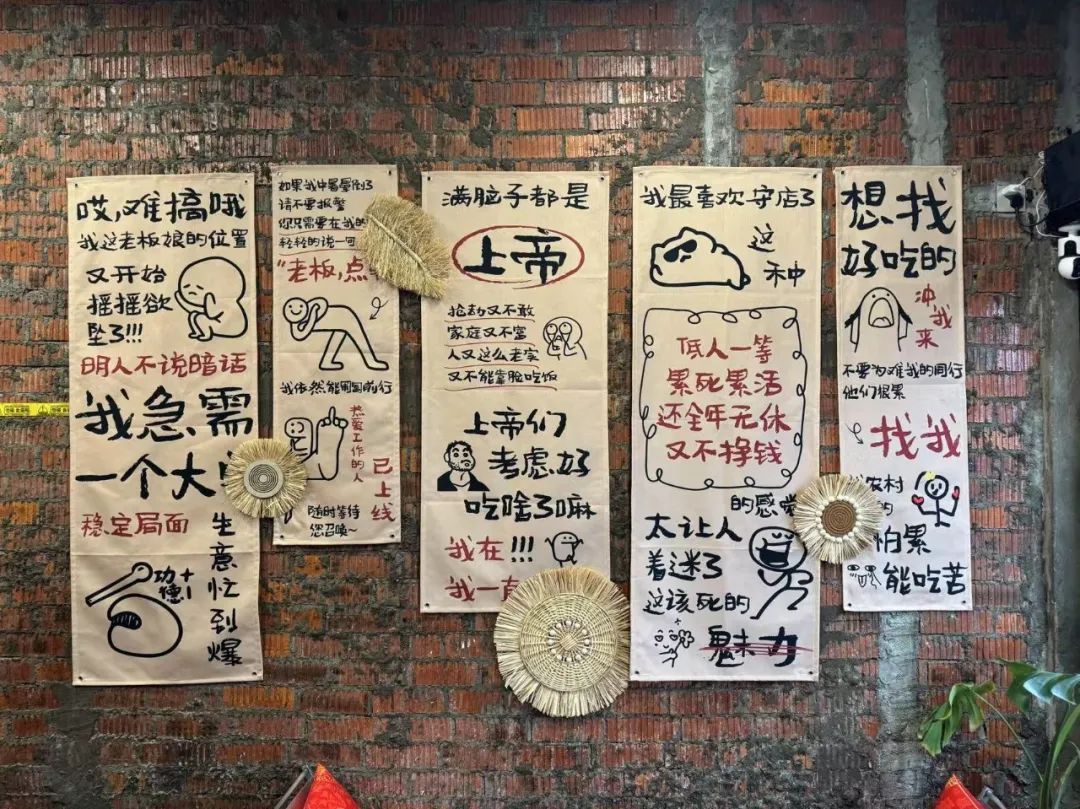 哎,难搞哦
我这老板娘的位置
又开始
摇摇欲
坠了!!!
明人不说暗话
我急需
一个大
稳定局面
生意忙到爆
功德+1
如果我中暑晕倒了
请不要报警
你只需要在我的
轻轻的说一句
“老板,点
我依然能匍匐前行
热爱工作的人
已上线
随时等待
您召唤~
满脑子都是
上帝
抢劫又不敢
家庭又不富
人又这么老实
又不能靠脸吃饭
上帝们
考虑好
吃啥了嘛
我在!!!
我一直
我最喜欢守店了
这种
低人一等
累死累活
还全年无休
又不挣钱
的感觉
太让人
着迷了
这该死的
魅力
想找
好吃的
冲我来
不要为难我的同行
他们很累
找我
农村
怕累
能吃苦